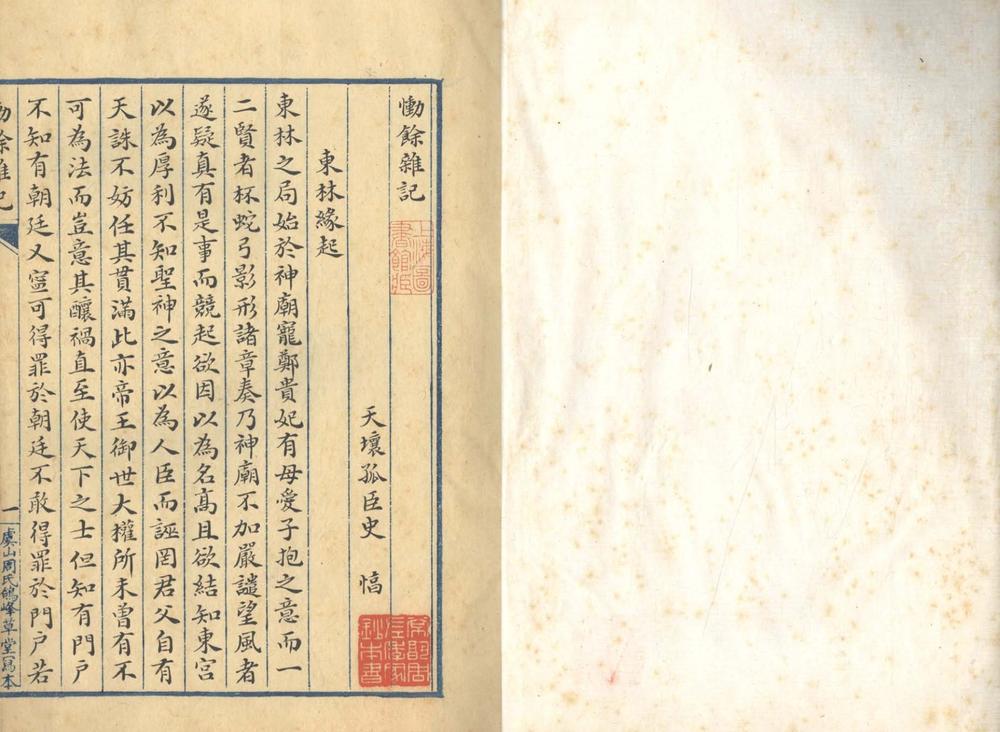 慟餘雜記
上海圖書館藏
天壤孤臣史
常熟周左季家鈔本書
東林緣起
東林之局始於神廟寵鄭貴妃有母愛子抱之意而一
二賢者杯蛇弓影形諸章奏乃神廟不加嚴譴望風者
遂疑真有是事而競起欲因以為名高且欲結知東宮
以為厚利不知聖神之意以為人臣而誣罔君父自有
天誅不妨任其貫滿此亦帝王御世大權所未曾有不
可為法而豈意其釀禍直至使天下之士但知有門戶
不知有朝廷又寧可得罪於朝廷不敢得罪於門戶若
慟餘雜記
一
虞山周氏鴿峰草堂寫本